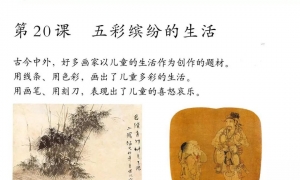 第20课 五彩缤纷的生活
古今中外，好多画家以儿童的生活作为创作的题材。
用线条、用色彩，画出了儿童多彩的生活。
用画笔、用刻刀，表现出了儿童的喜怒哀乐。